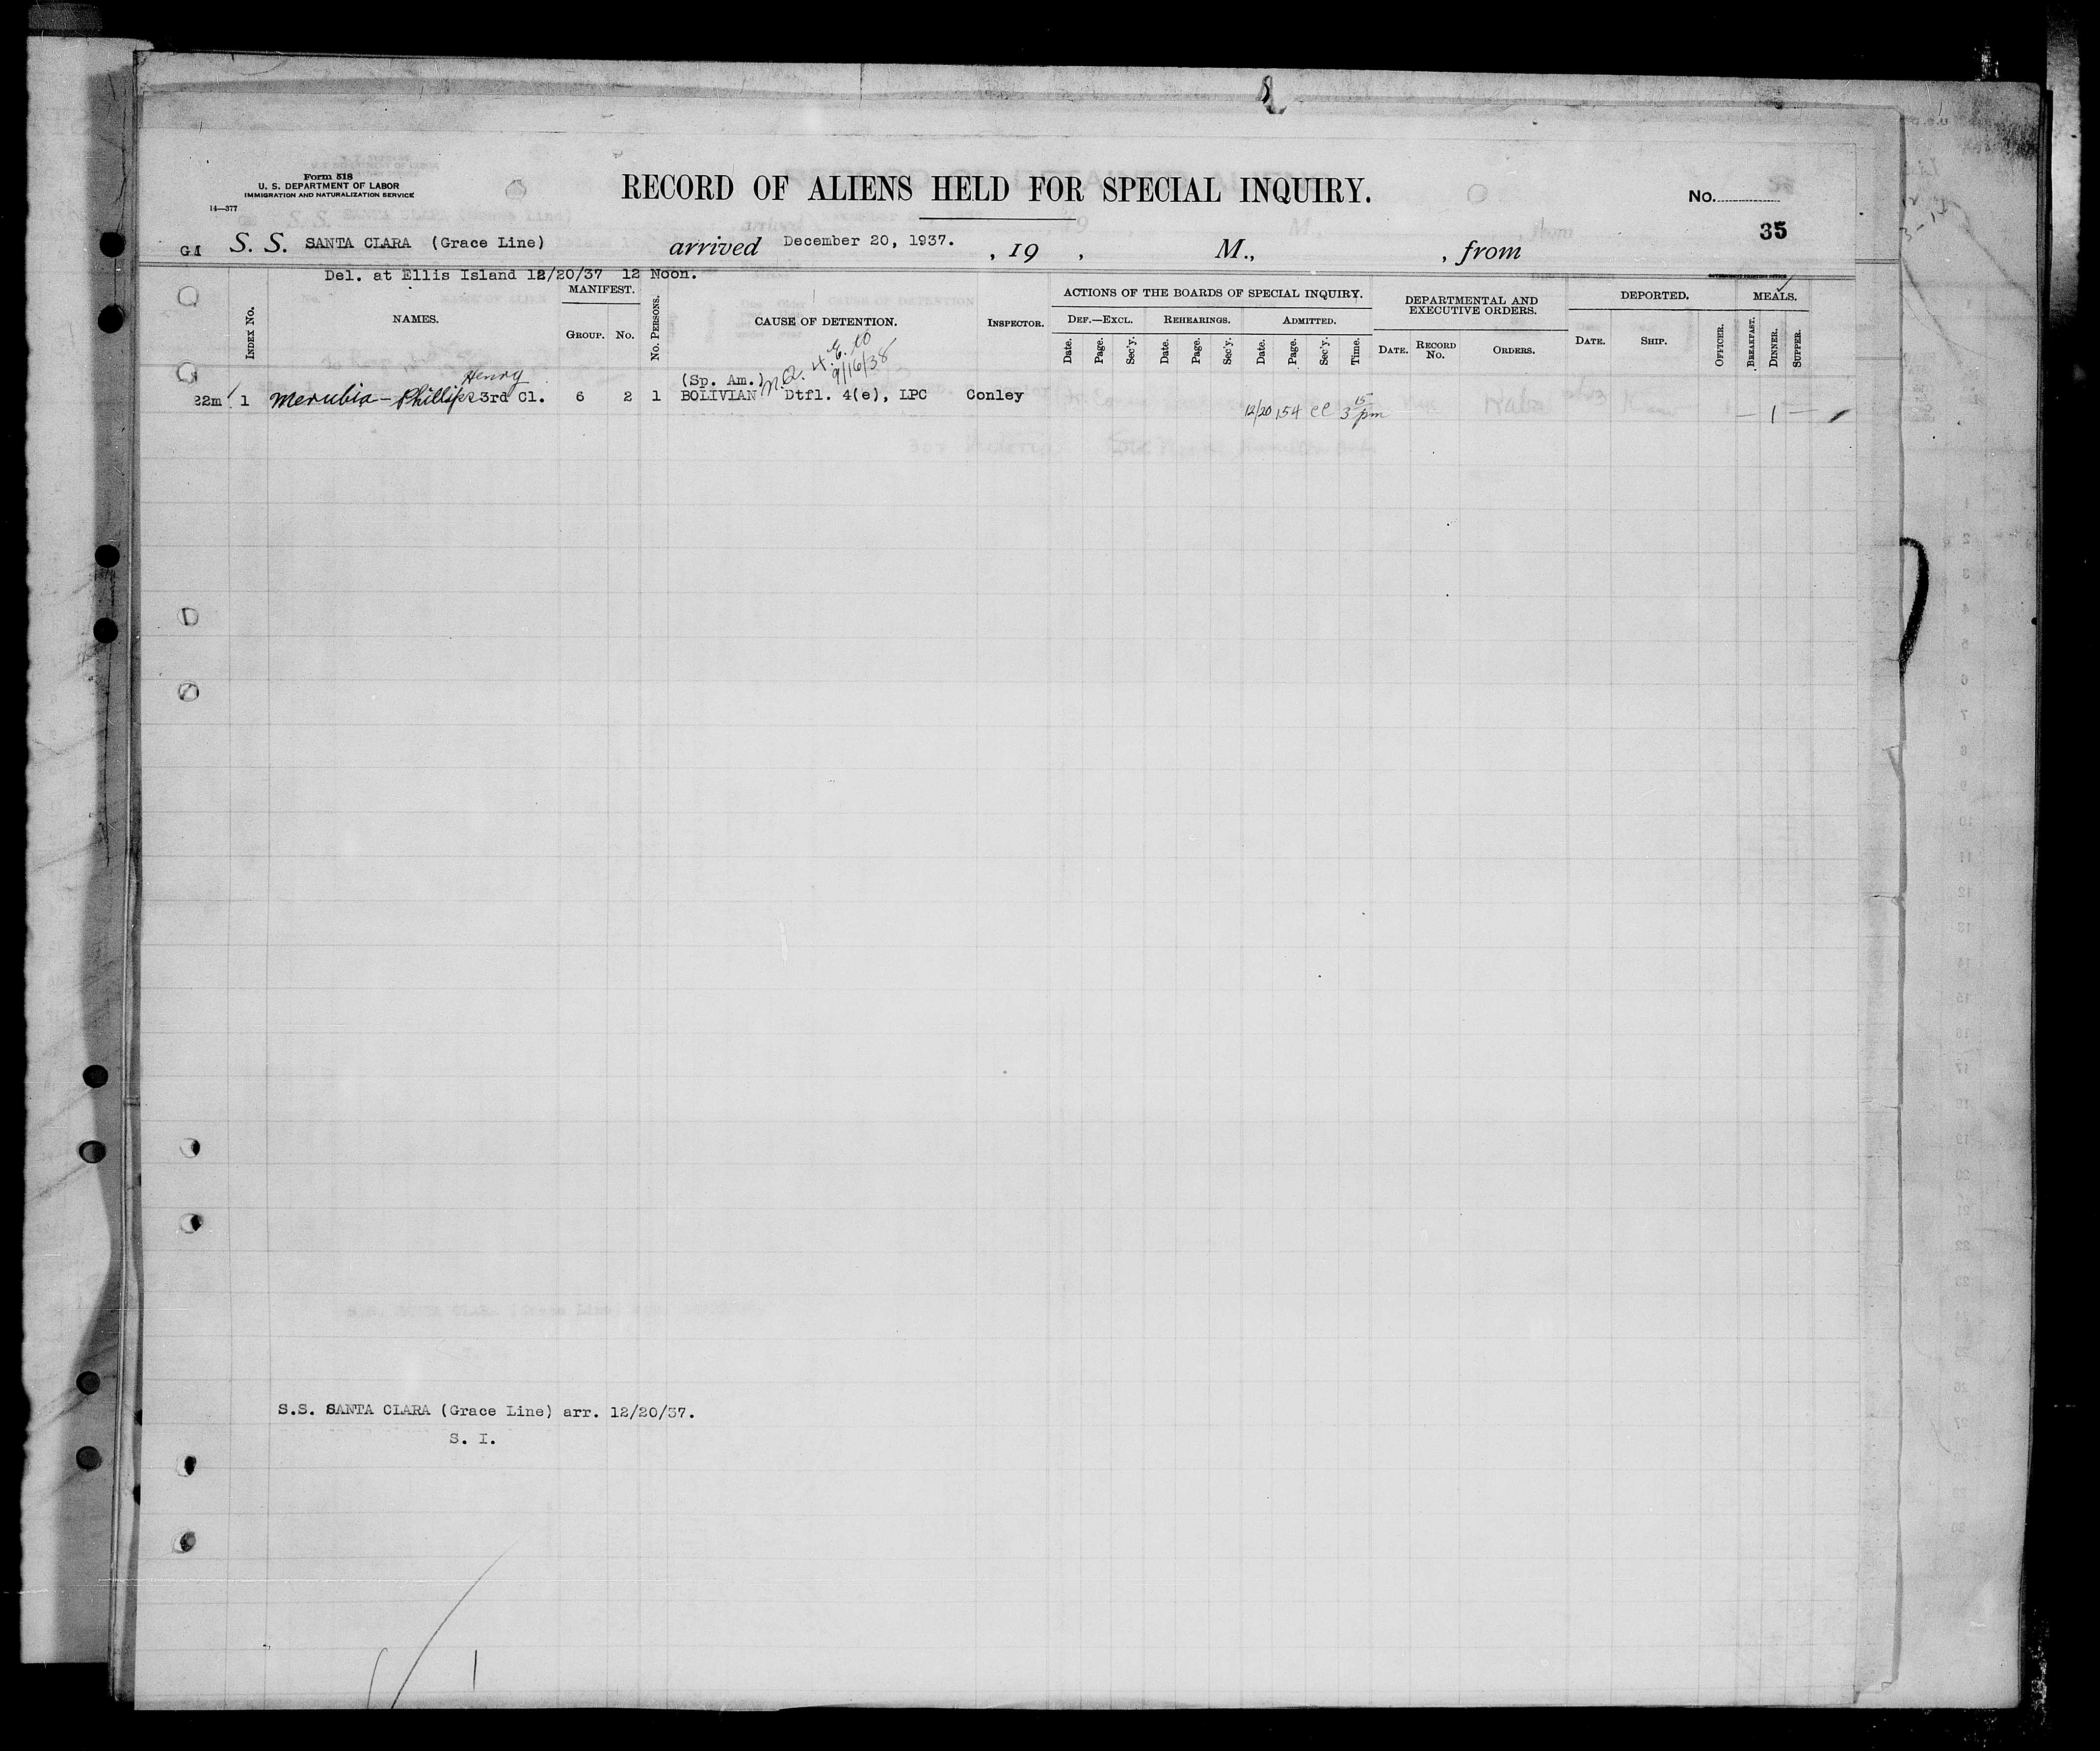 Form 518
U. S. DEPARTMENT OF LABOR
IMMIGRATION AND NATURALIZATION SERVICE
14—377
RECORD OF ALIENS HELD FOR SPECIAL INQUIRY.
No.
35
GI S. S. SANTA CLARA (Grace Line) arrived December 20, 1937. , 19 , M., , from
Del. at Ellis Island 12/20/37 12 Noon.
INDEX No. NAMES. MANIFEST. GROUP. No. No. PERSONS. CAUSE OF DETENTION. INSPECTOR.
ACTIONS OF THE BOARDS OF SPECIAL INQUIRY.
DEF.—EXCL. REHEARINGS. ADMITTED.
Date. Page. Sec'y. Date. Page. Sec'y. Date. Page. Sec'y. Time.
DEPARTMENTAL AND EXECUTIVE ORDERS.
DATE. RECORD No. ORDERS.
DEPORTED.
DATE. SHIP. OFFICER.
MEALS.
BREAKFAST. DINNER. SUPPER.
9/16/38
Henry (Sp. Am.)
22m 1 Merubia - Phillips 3rd Cl. 6 2 1 BOLIVIAN Dtfl. 4(e), LPC Conley 12/20 154 cc 3 15 pm — 1 —
S.S. SANTA CLARA (Grace Line) arr. 12/20/37.
S. I.